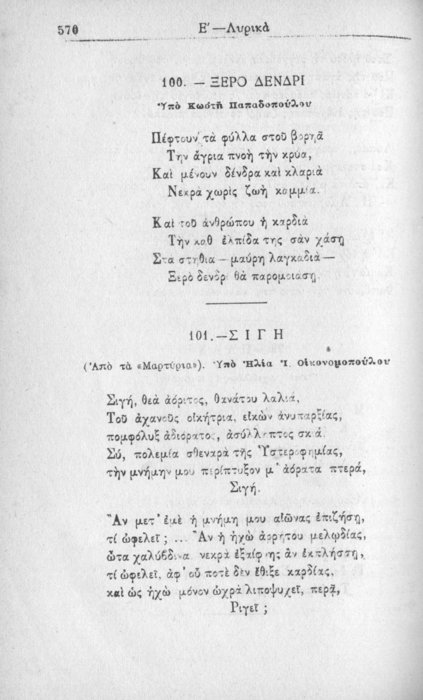 570
Ε'—Λυρικὰ
100. — ΞΕΡΟ ΔΕΝΔΡΙ
Ὑπὸ Κωστῆ Παπαδοπούλου
Πέφτουν τὰ φύλλα στοῦ βορηᾶ
Τὴν ἄγρια πνοὴ τὴν κρύα,
Καὶ μένουν δένδρα καὶ κλαριὰ
Νεκρὰ χωρὶς ζωὴ καμμία.
Καὶ τοῦ ἀνθρώπου ἡ καρδιὰ
Τὴν καθ ἐλπίδα της σὰν χάσῃ
Στα στηθια — μαύρη λαγκαδιὰ —
Ξερο δενδρι θὰ παρομοιαση.
101.—ΣΙΓΗ
(Ἀπὸ τὰ «Μαρτύρια»). Ὑπὸ Ἠλία Ἰ. Οἰκονομοπούλου
Σιγή, θεὰ ἀόριτος, θανάτου λαλιά,
Τοῦ ἀχανοῦς οἰκήτρια, εἰκὼν ἀνυπαρξίας,
πομφόλυξ ἀδιόρατος, ἀσύλληπτος σκιά.
Σύ, πολεμία σθεναρὰ τῆς Ὑστεροφημίας,
τὴν μνήμην μου περίπτυξον μ' ἀόρατα πτερά,
Σιγή.
Ἂν μετ' ἐμὲ ἡ μνήμη μου αἰῶνας ἐπιζήσῃ,
τί ὠφελεῖ ; ... Ἂν ἡ ἠχὼ ἀρρήτου μελῳδίας,
ὦτα χαλύβδινα νεκρὰ ἐξαίφνης ἂν ἐκπλήσσῃ,
τί ὠφελεῖ, ἀφ' οὗ ποτὲ δὲν ἔθιξε καρδίας,
καὶ ὡς ἠχὼ μόνον ὠχρὰ λιποψυχεῖ, περᾷ,
Ριγεῖ ;